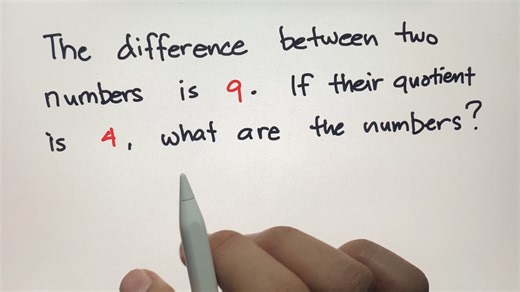 The difference between two
numbers is 9. If their quotient
is 4, what are the numbers?